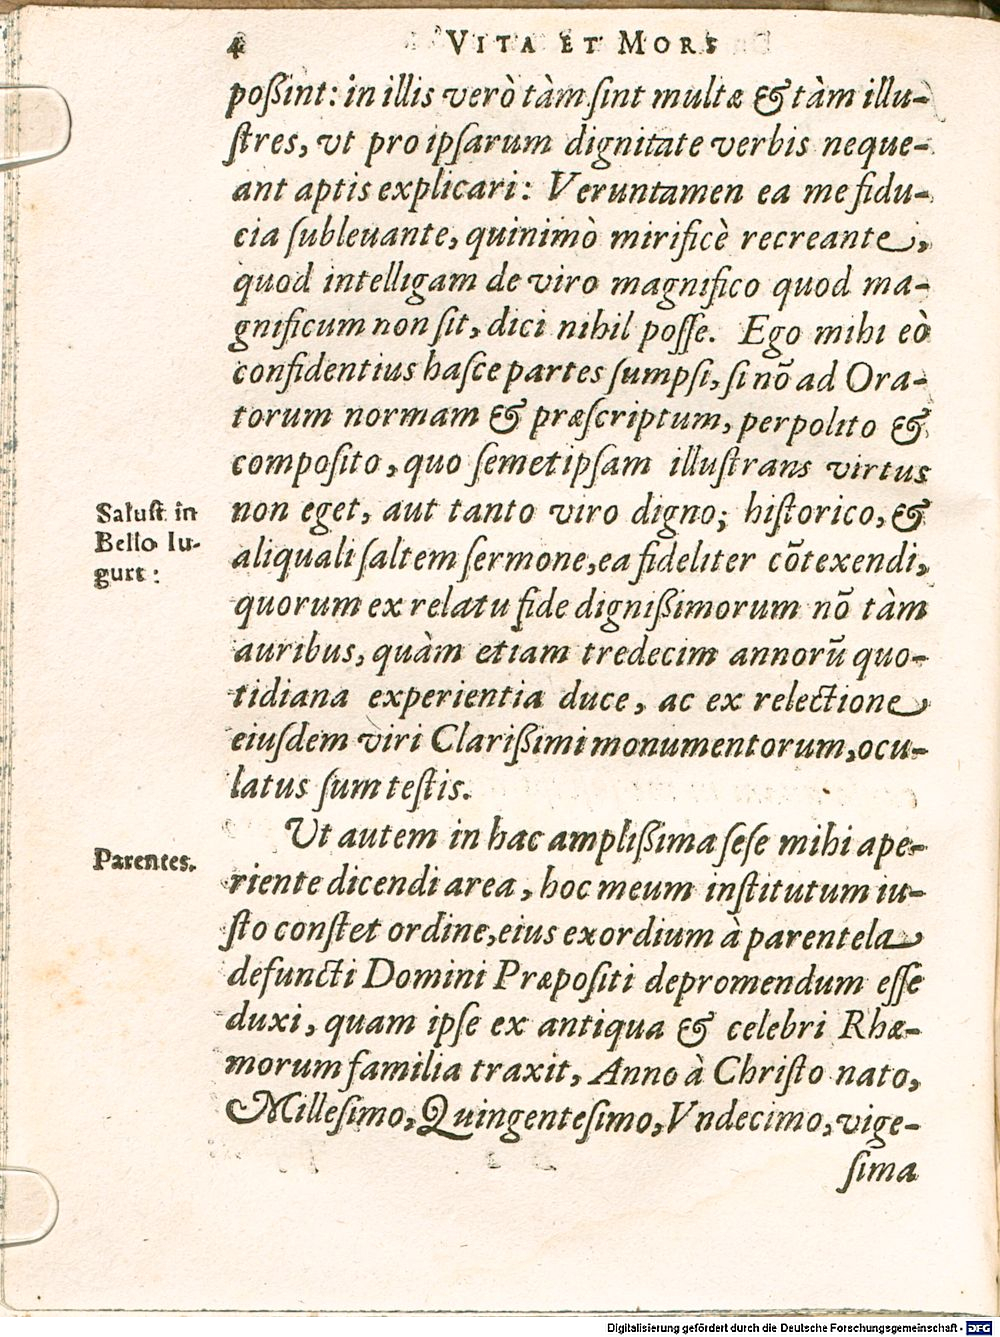 4 VITA ET MORS
poßint: in illis verò tàm ſint multæ & tàm illu-
ſtres, vt pro ipſarum dignitate verbis neque-
ant aptis explicari: Veruntamen ea me fidu-
cia ſubleuante, quinimò mirificè recreante,
quod intelligam de viro magnifico quod ma-
gnificum non ſit, dici nihil poſſe. Ego mihi eò
confidentius haſce partes ſumpſi, ſi nõ ad Ora-
torum normam & præſcriptum, perpolito &
compoſito, quo ſemetipſam illuſtrans virtus
Saluſt in
Bello Iu-
gurt:
non eget, aut tanto viro digno; hiſtorico, &
aliquali ſaltem ſermone, ea fideliter cõtexendi,
quorum ex relatu fide dignißimorum nõ tàm
auribus, quàm etiam tredecim annorũ quo-
tidiana experientia duce, ac ex relectione
eiuſdem viri Clarißimi monumentorum, ocu-
latus ſum teſtis.
Parentes.
Ut autem in hac amplißima ſeſe mihi ape-
riente dicendi area, hoc meum inſtitutum iu-
ſto conſtet ordine, eius exordium à parentela
defuncti Domini Præpoſiti depromendum eſſe
duxi, quam ipſe ex antiqua & celebri Rhæ-
morum familia traxit, Anno à Chriſto nato,
Milleſimo, Quingenteſimo, Vndecimo, vige-
ſima
Digitalisierung gefördert durch die Deutsche Forschungsgemeinschaft - DFG